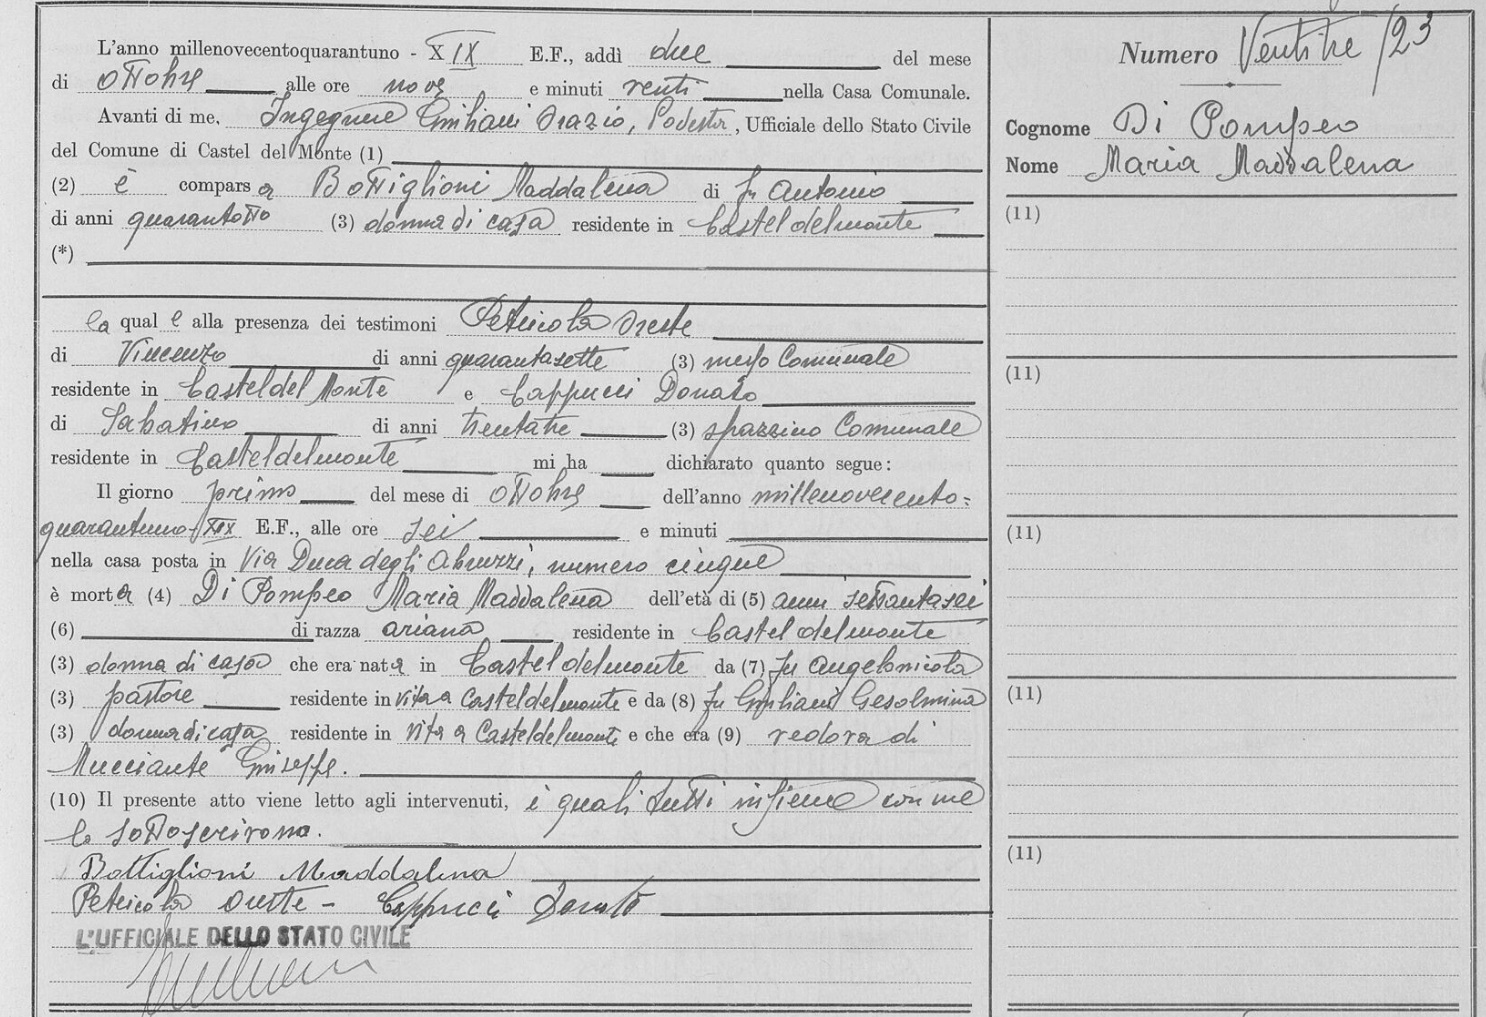 L'anno millenovecentoquarantuno - XIX E.F., addì due del mese
di ottobre alle ore nove e minuti venti nella Casa Comunale.
Avanti di me, Ingegnere Giuliani Orazio, Podestà, Ufficiale dello Stato Civile
del Comune di Castel del Monte (1)
(2) è comparsa Bottiglioni Maddalena di fu Antonio
di anni quarantotto (3) donna di casa residente in Casteldelmonte
(*)
la quale alla presenza dei testimoni Petricola Oreste
di Vincenzo di anni quarantasette (3) messo Comunale
residente in Castel del Monte e Cappucci Donato
di Sabatino di anni trentatre (3) spazzino Comunale
residente in Casteldelmonte mi ha dichiarato quanto segue:
Il giorno primo del mese di ottobre dell'anno millenovecento=
quarantuno - XIX E.F., alle ore sei e minuti
nella casa posta in Via Duca degli Abruzzi, numero cinque
è morta (4) Di Pompeo Maria Maddalena dell'età di (5) anni settantasei
(6) di razza ariana residente in Casteldelmonte
(3) donna di casa che era nata in Casteldelmonte da (7) fu Angelonicola
(3) pastore residente in vita a Casteldelmonte e da (8) fu Giuliani Gesolmina
(3) donna di casa residente in vita a Casteldelmonte e che era (9) vedova di
Mucciante Giuseppe.
(10) Il presente atto viene letto agli intervenuti, i quali tutti insieme con me
lo sottoscrivono.
Bottiglioni Maddalena
Petricola Oreste - Cappucci Donato
L'UFFICIALE DELLO STATO CIVILE
Numero Ventitre /23
Cognome Di Pompeo
Nome Maria Maddalena
(11)
(11)
(11)
(11)
(11)